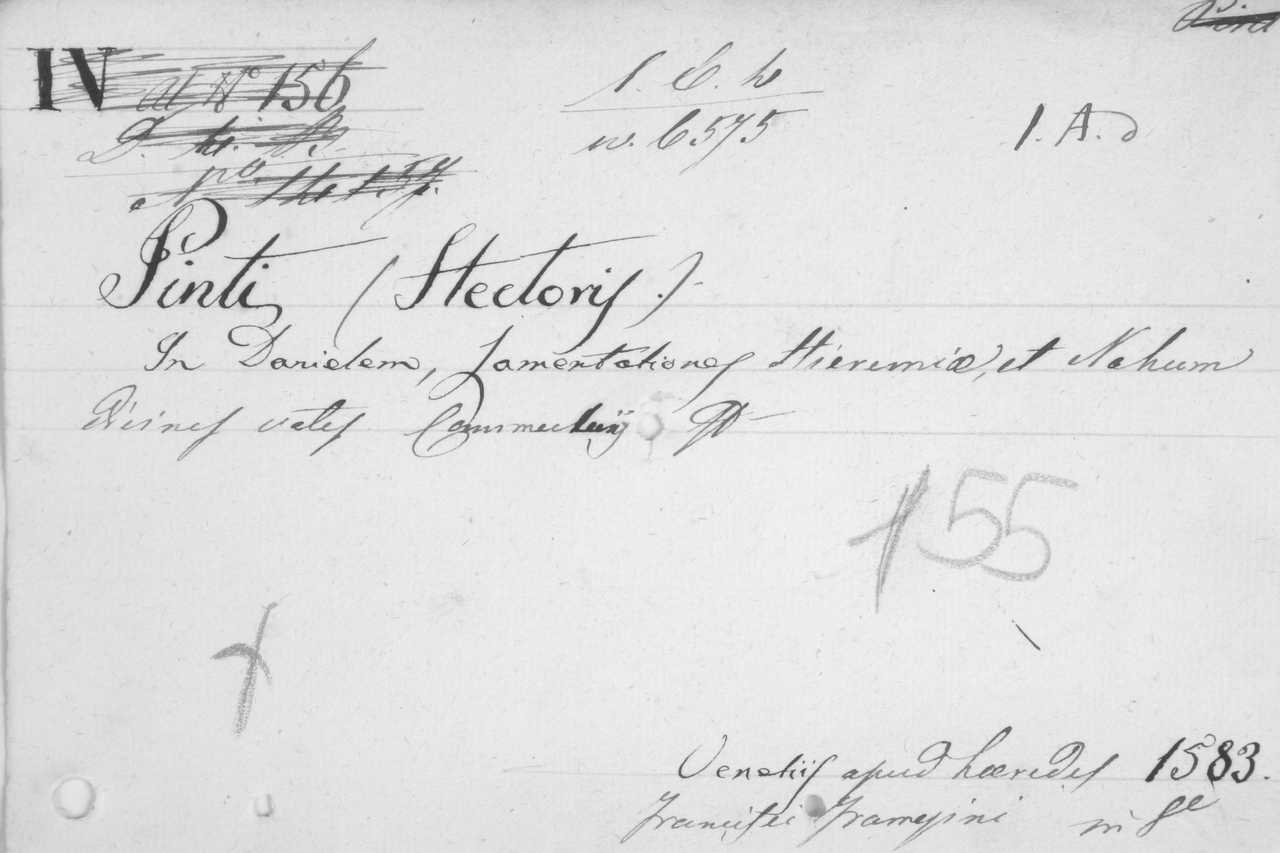 Pint
IV at No 156
I. C. h
n. 6575
I. A. d
Pinti (Hectoris.)
In Danielem, Lamentationes Hieremiæ, et Nahum
Divines vates Commentarij
155
Venetiis apud hæredes 1583.
Francisci Framesini in 8e